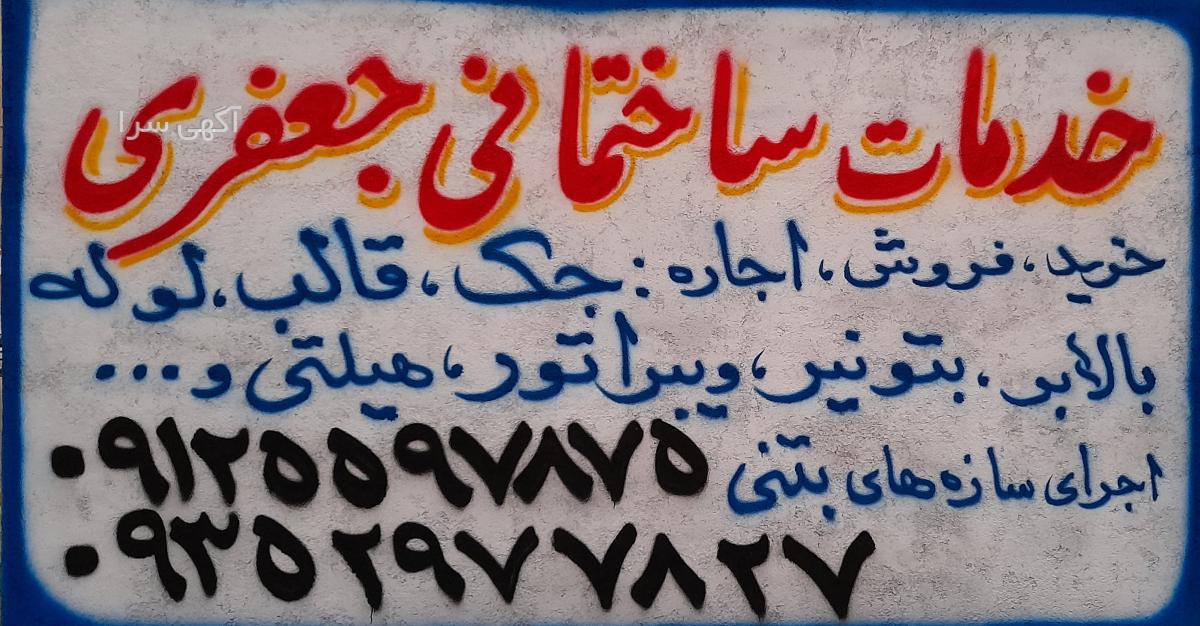 خدمات ساختمانی جعفری
آگهی سرا
خرید، فروش، اجاره : جک، قالب، لوله
بالابر، بتونیر، ویبراتور، هیلتی و...
اجرای سازه های بتنی ۰۹۱۲۵۵۹۷۸۷۵
۰۹۳۵۲۹۷۷۸۲۷